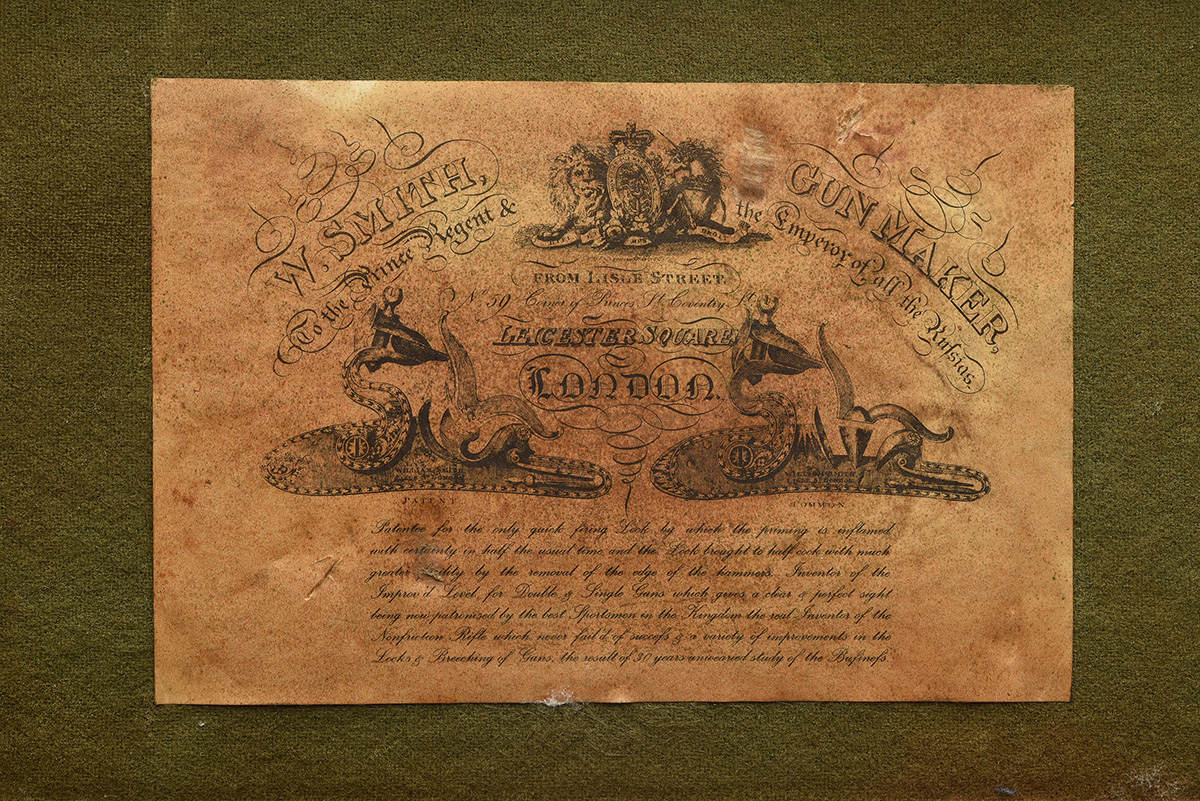 W. SMITH,
GUN MAKER,
To the Prince Regent &
the Emperor of all the Rufsias.
FROM LISLE STREET.
No. 59 Corner of Princes St. Coventry St.
LEICESTER SQUARE
LONDON.
PATENT
COMMON
Patentee for the only quick firing Lock by which the priming is inflamed
with certainty in half the usual time and the Lock brought to half cock with much
greater by the removal of the edge of the hammers. Inventor of the
Improv'd Level for Double & Single Guns which gives a clear & perfect sight
being now patronised by the best Sportsmen in the Kingdom the real Inventor of the
Nonfriction Rifle which never fail'd of succefs & a variety of improvements in the
Locks & Breeching of Guns, the result of 30 years unwearied study of the Businefs.